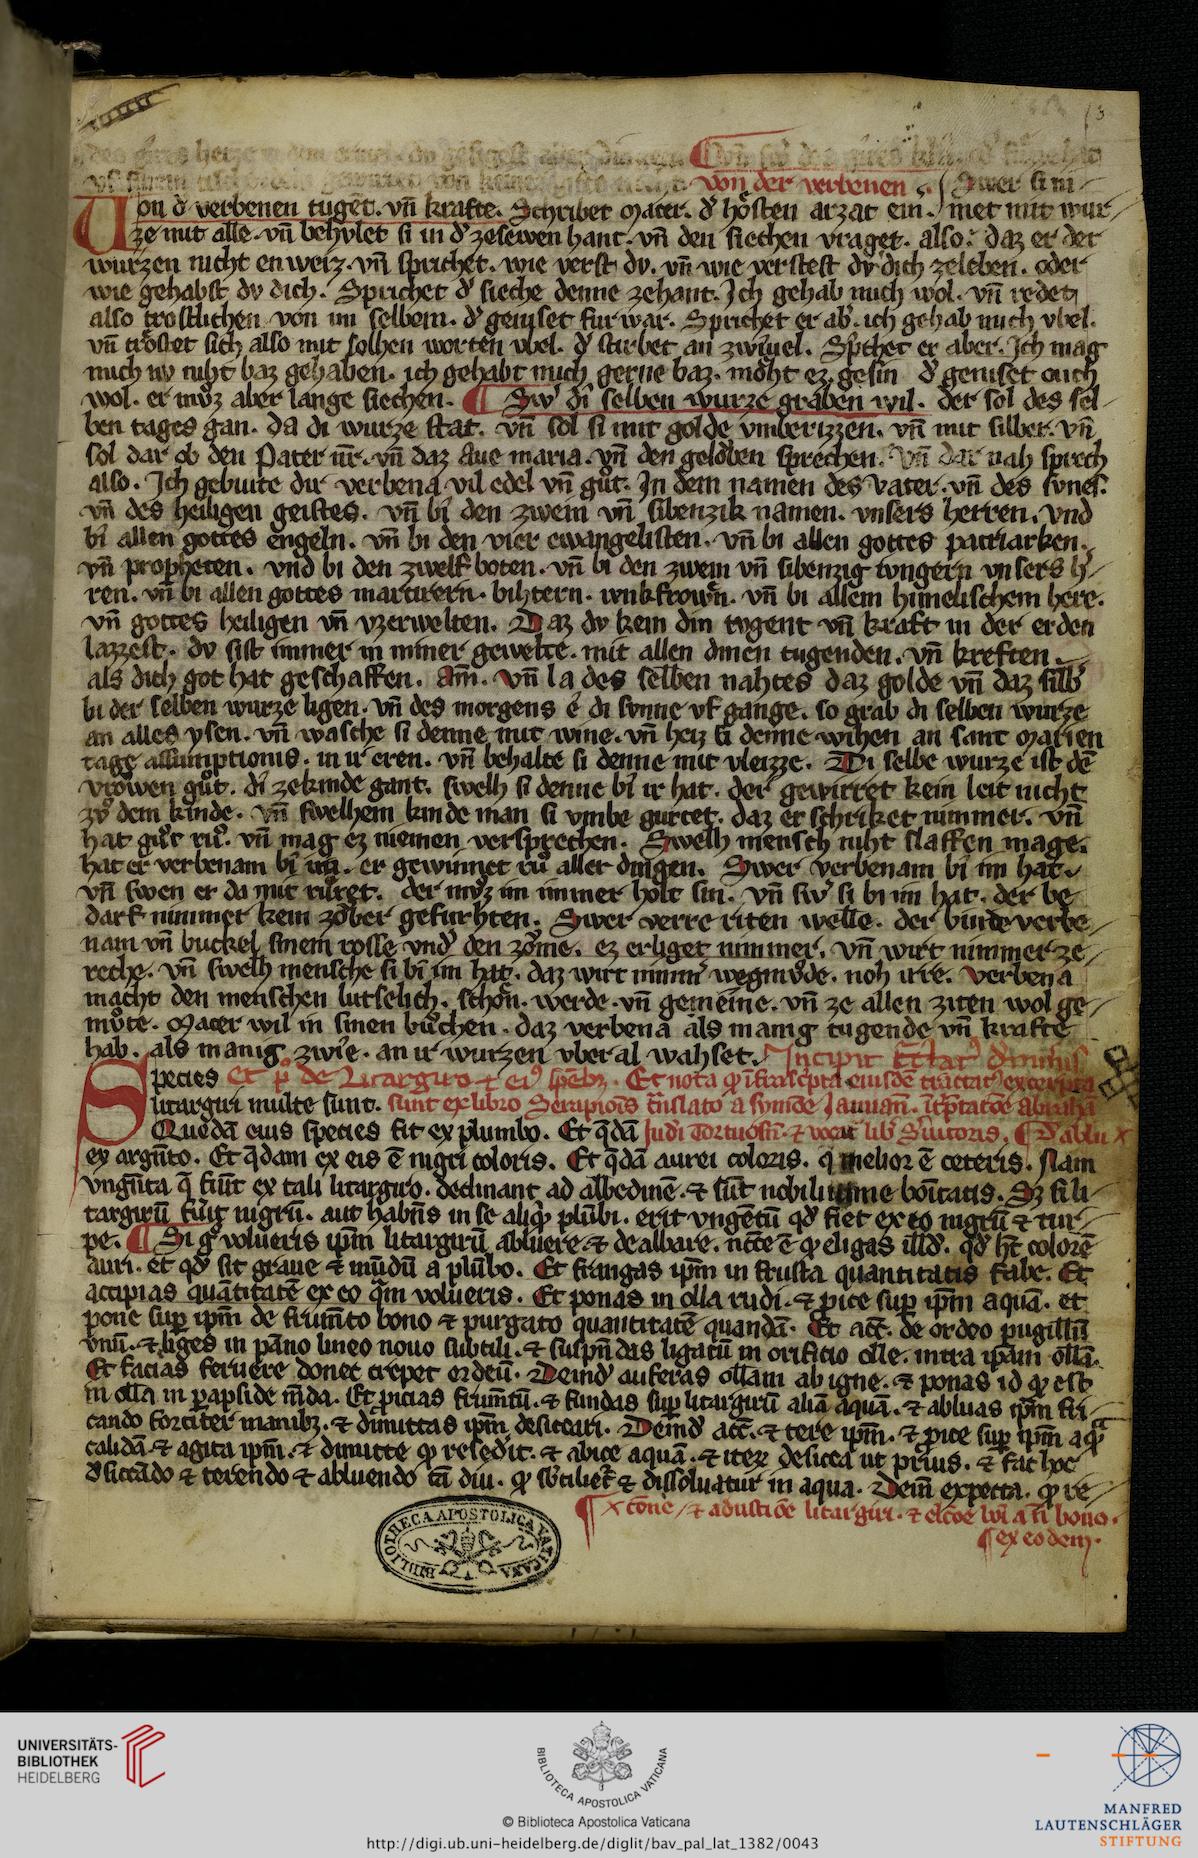 von der verbenen. Swer si ni-
Von d᷑ verbenen tugēt. vn̄ krafte. Schribet Macer. d᷑ hosten arzat ein. met mit wur-
ze mit alle. vn̄ behvlet si in d᷑ zesewen hant. vn̄ den siechen vraget. also. daz er der
wurzen nicht en weiz. vn̄ sprichet. wie verst dv. vn̄ wie verstest dv dich zeleben. oder
wie gehabst dv dich. Sprichet d᷑ sieche denne zehant. Ich gehab mich wol. vn̄ redet
also trostlichen von im selbem. d᷑ geniset fur war. Sprichet er ab᷑. ich gehab mich vbel.
vn̄ trostet sich also mit solhen worten vbel. d᷑ stirbet an zwiuel. Sp̄chet er aber. Ich mag
mich nv niht baz gehaben. ich gehabt mich gerne baz. moht ez gesin d᷑ geniset ouch
wol. er mvz aber lange siechen. Sw᷑ di selben wurze graben wil. der sol des sel-
ben tages gan. da di wurze stat. vn̄ sol si mit golde vmberizzen. vn̄ mit silber. vn̄
sol dar ob den Pater nr̄. vn̄ daz Aue maria. vn̄ den geloben sprechen. vn̄ dar nah sprech
also. Ich gebiute dir verbena vil edel vn̄ gut. In dem namen des vater. vn̄ des svnes.
vn̄ des heiligen geistes. vn̄ bi den zwein vn̄ sibenzik namen. vnsers herren. vnd
bi allen gottes engeln. vn̄ bi den vier ewangelisten. vn̄ bi allen gottes patriarken.
vn̄ propheten. vnd bi den zwelf boten. vn̄ bi den zwein vn̄ sibenzig tvngern vnsers h᷑-
ren. vn̄ bi allen gottes martirern. bihtern. ivnkfrown. vn̄ bi allem himelischem here.
vn̄ gottes heiligen vn̄ vzerwelten. Daz dv kein din tvgent vn̄ kraft in der erden
lazzest. dv sist immer in miner gewelte. mit allen dinen tugenden. vn̄ kreften.
als dich got hat geschaffen. Am̄. vn̄ la des selben nahtes daz golde vn̄ daz silb᷑
bi der selben wurze ligen. vn̄ des morgens e di svnne vf gange. so grab di selben wurze
an alles ysen. vn̄ wasche si denne mit wine. vn̄ heiz si denne wihen an sant Marien
tage assumptionis. in ir eren. vn̄ behalte si denne mit vleizze. Di selbe wurze ist dē
vrowen gut. di ze kinde gant. swelh si denne bi ir hat. der gewirret kein leit nicht
zv dem kinde. vn̄ swelhem kinde man si vmbe gurtet. daz er schriket nimmer. vn̄
hat gut ru. vn̄ mag ez niemen versprechen. Swelh mensch niht slaffen mage.
hat er verbenam bi im. er gewinnet ru aller dingen. Swer verbenam bi im hat.
vn̄ swen er da mit ruret. der mvz im immer holt sin. vn̄ sw᷑ si bi im hat. der be-
darf nimmer kein zober gefurhten. Swer verre riten welle. der binde verbe-
nam vn̄ buckel sinem rosse vnd᷑ den zome. ez erliget nimmer. vn̄ wirt nimmer ze-
reche. vn̄ swelh mensche si bi im hat. daz wirt nimm᷑ wegmvde. noh irre. Verbena
machet den menschen lutselich. schon. werde. vn̄ gemeine. vn̄ ze allen ziten wol ge-
mvte. Macer wil in sinen buchen. daz verbena als manig tugende vn̄ krafte
hab. als manig zwie. an ir wurzen vber al wahset. Incipit
Species et p᷑ de Litargiro et ei᷒ Et nota q̄ excerpta
Litargiri multe sunt. sunt ex libro Serapiois
Quedā eius species fit ex plumbo. Et q̄dā
ex argēto. Et q̄dam ex eis ē nigri coloris. Et q̄dā aurei coloris. q̄ melior ē ceteris. Nam
vngēta q̄ fiūt ex tali litargiro. declinant ad albedinē. ⁊ sūt nobilissime bōitatis. Sꝫ si li-
targirū fūit nigrū. aut habēs in se aliq̄ plūbi. erit vngētū qd᷑ fiet ex eo nigrū ⁊ tur-
pe. Si g᷑ volueris ip̄m litargirū abluere ⁊ dealbare. nēce ē q̄ eligas illd᷑. qd᷑ hꝫ colorē
auri. et qd᷑ sit graue ⁊ mūdū a plūbo. Et frangas ip̄m in frusta quantitatis fabe. Et
accipias quātitatē ex eo q̄m volueris. Et ponas in olla rudi. ⁊ ꝓice sup̄ ip̄m aquā. et
pone sup̄ ip̄m de frumēto bono ⁊ purgato quantitatē quandā. Et acc̄. de ordeo pugillū
vnū. ⁊ liges in pāno lineo nouo subtili. ⁊ suspēdas ligatū in orificio olle. intra ip̄am ollā.
Et facias feruere donec crepet ordeū. Deind᷑ auferas ollam ab igne. ⁊ ponas id q̄ est
in olla in ꝑapside mūda. Et ꝓicias frumētū. ⁊ fundas sup̄ litargirū aliā aquā. ⁊ abluas ip̄m fri-
cando fortiter manibꝫ. ⁊ dimittas ip̄m desiccari. Deind᷑ acc̄. ⁊ tere ip̄m. ⁊ ꝓice sup̄ ip̄m aquā
calidā ⁊ agita ip̄m. ⁊ dimitte q̄ resedit. ⁊ abice aquā. ⁊ iteꝝ desicca ut prius. ⁊ fac hoc
d᷑siccādo ⁊ terendo ⁊ abluendo tā diu. q̄ ⁊ dissoluatur in aqua. Dein̄ expecta. q̄ re-
⁊ adustiōe litargiri. ⁊ bono.
ex eodem.
BIBLIOTHECA APOSTOLICA VATICANA
UNIVERSITÄTS-
BIBLIOTHEK
HEIDELBERG
BIBLIOTECA APOSTOLICA VATICANA
© Biblioteca Apostolica Vaticana
http://digi.ub.uni-heidelberg.de/diglit/bav_pal_lat_1382/0043
MANFRED
LAUTENSCHLÄGER
STIFTUNG